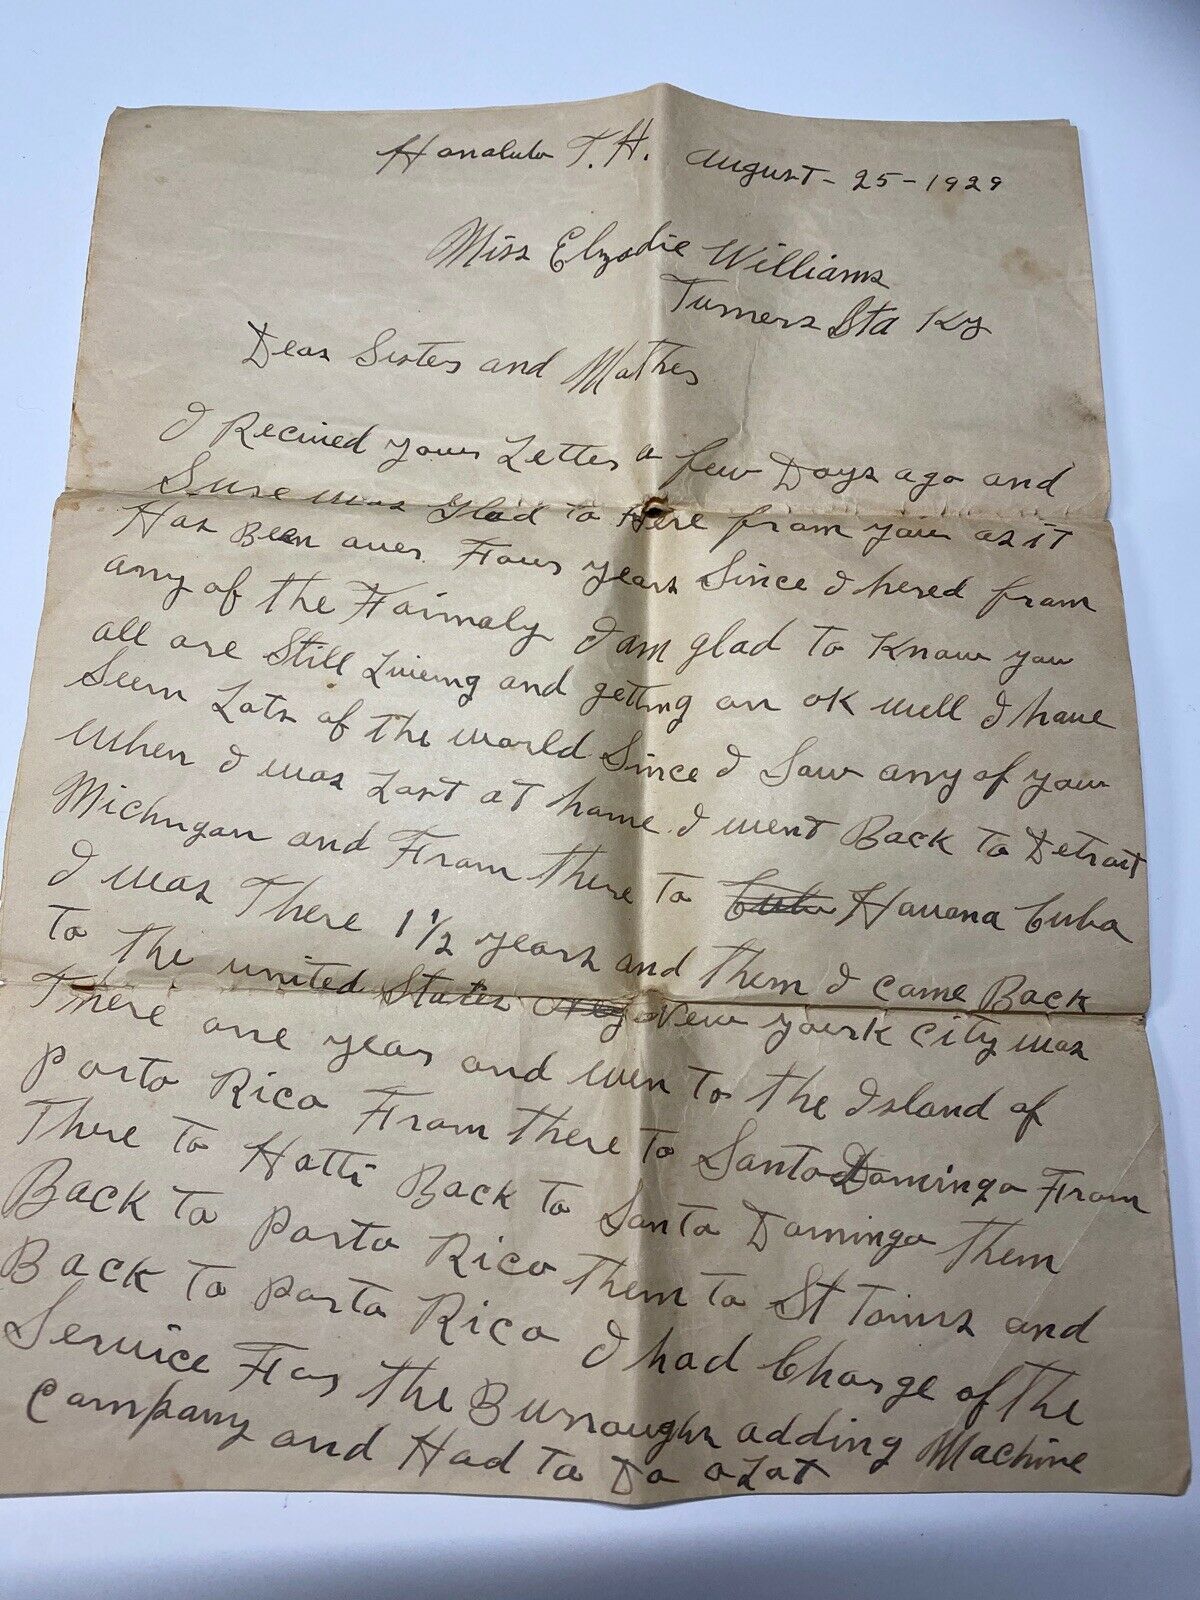 Honalulu T.H. august-25-1929
Miss Elzodie Williams
Turners Sta Ky
Dear Sister and Mother
I Recived your Letter a few Days ago and
Sure was Glad to Here from you as it
Has Been over Four years Since I hered from
any of the Faimaly I am glad to Know you
all are Still Liveing and getting on ok well I have
Seen Lots of the world Since I Saw any of you
When I was Last at home. I went Back to Detroit
Michugan and From there to Cuba Havana Cuba
I was There 1 1/2 years and them I came Back
to the united States New York City was
There one year and wen to the Island of
Porto Rico From there to Santo Domingo From
There to Hatti Back to Santo Domingo them
Back to Porto Rico them to St Toms and
Back to Porto Rico I had Charge of the
Service For the Burroughs adding Machine
Company and Had to Do aLot